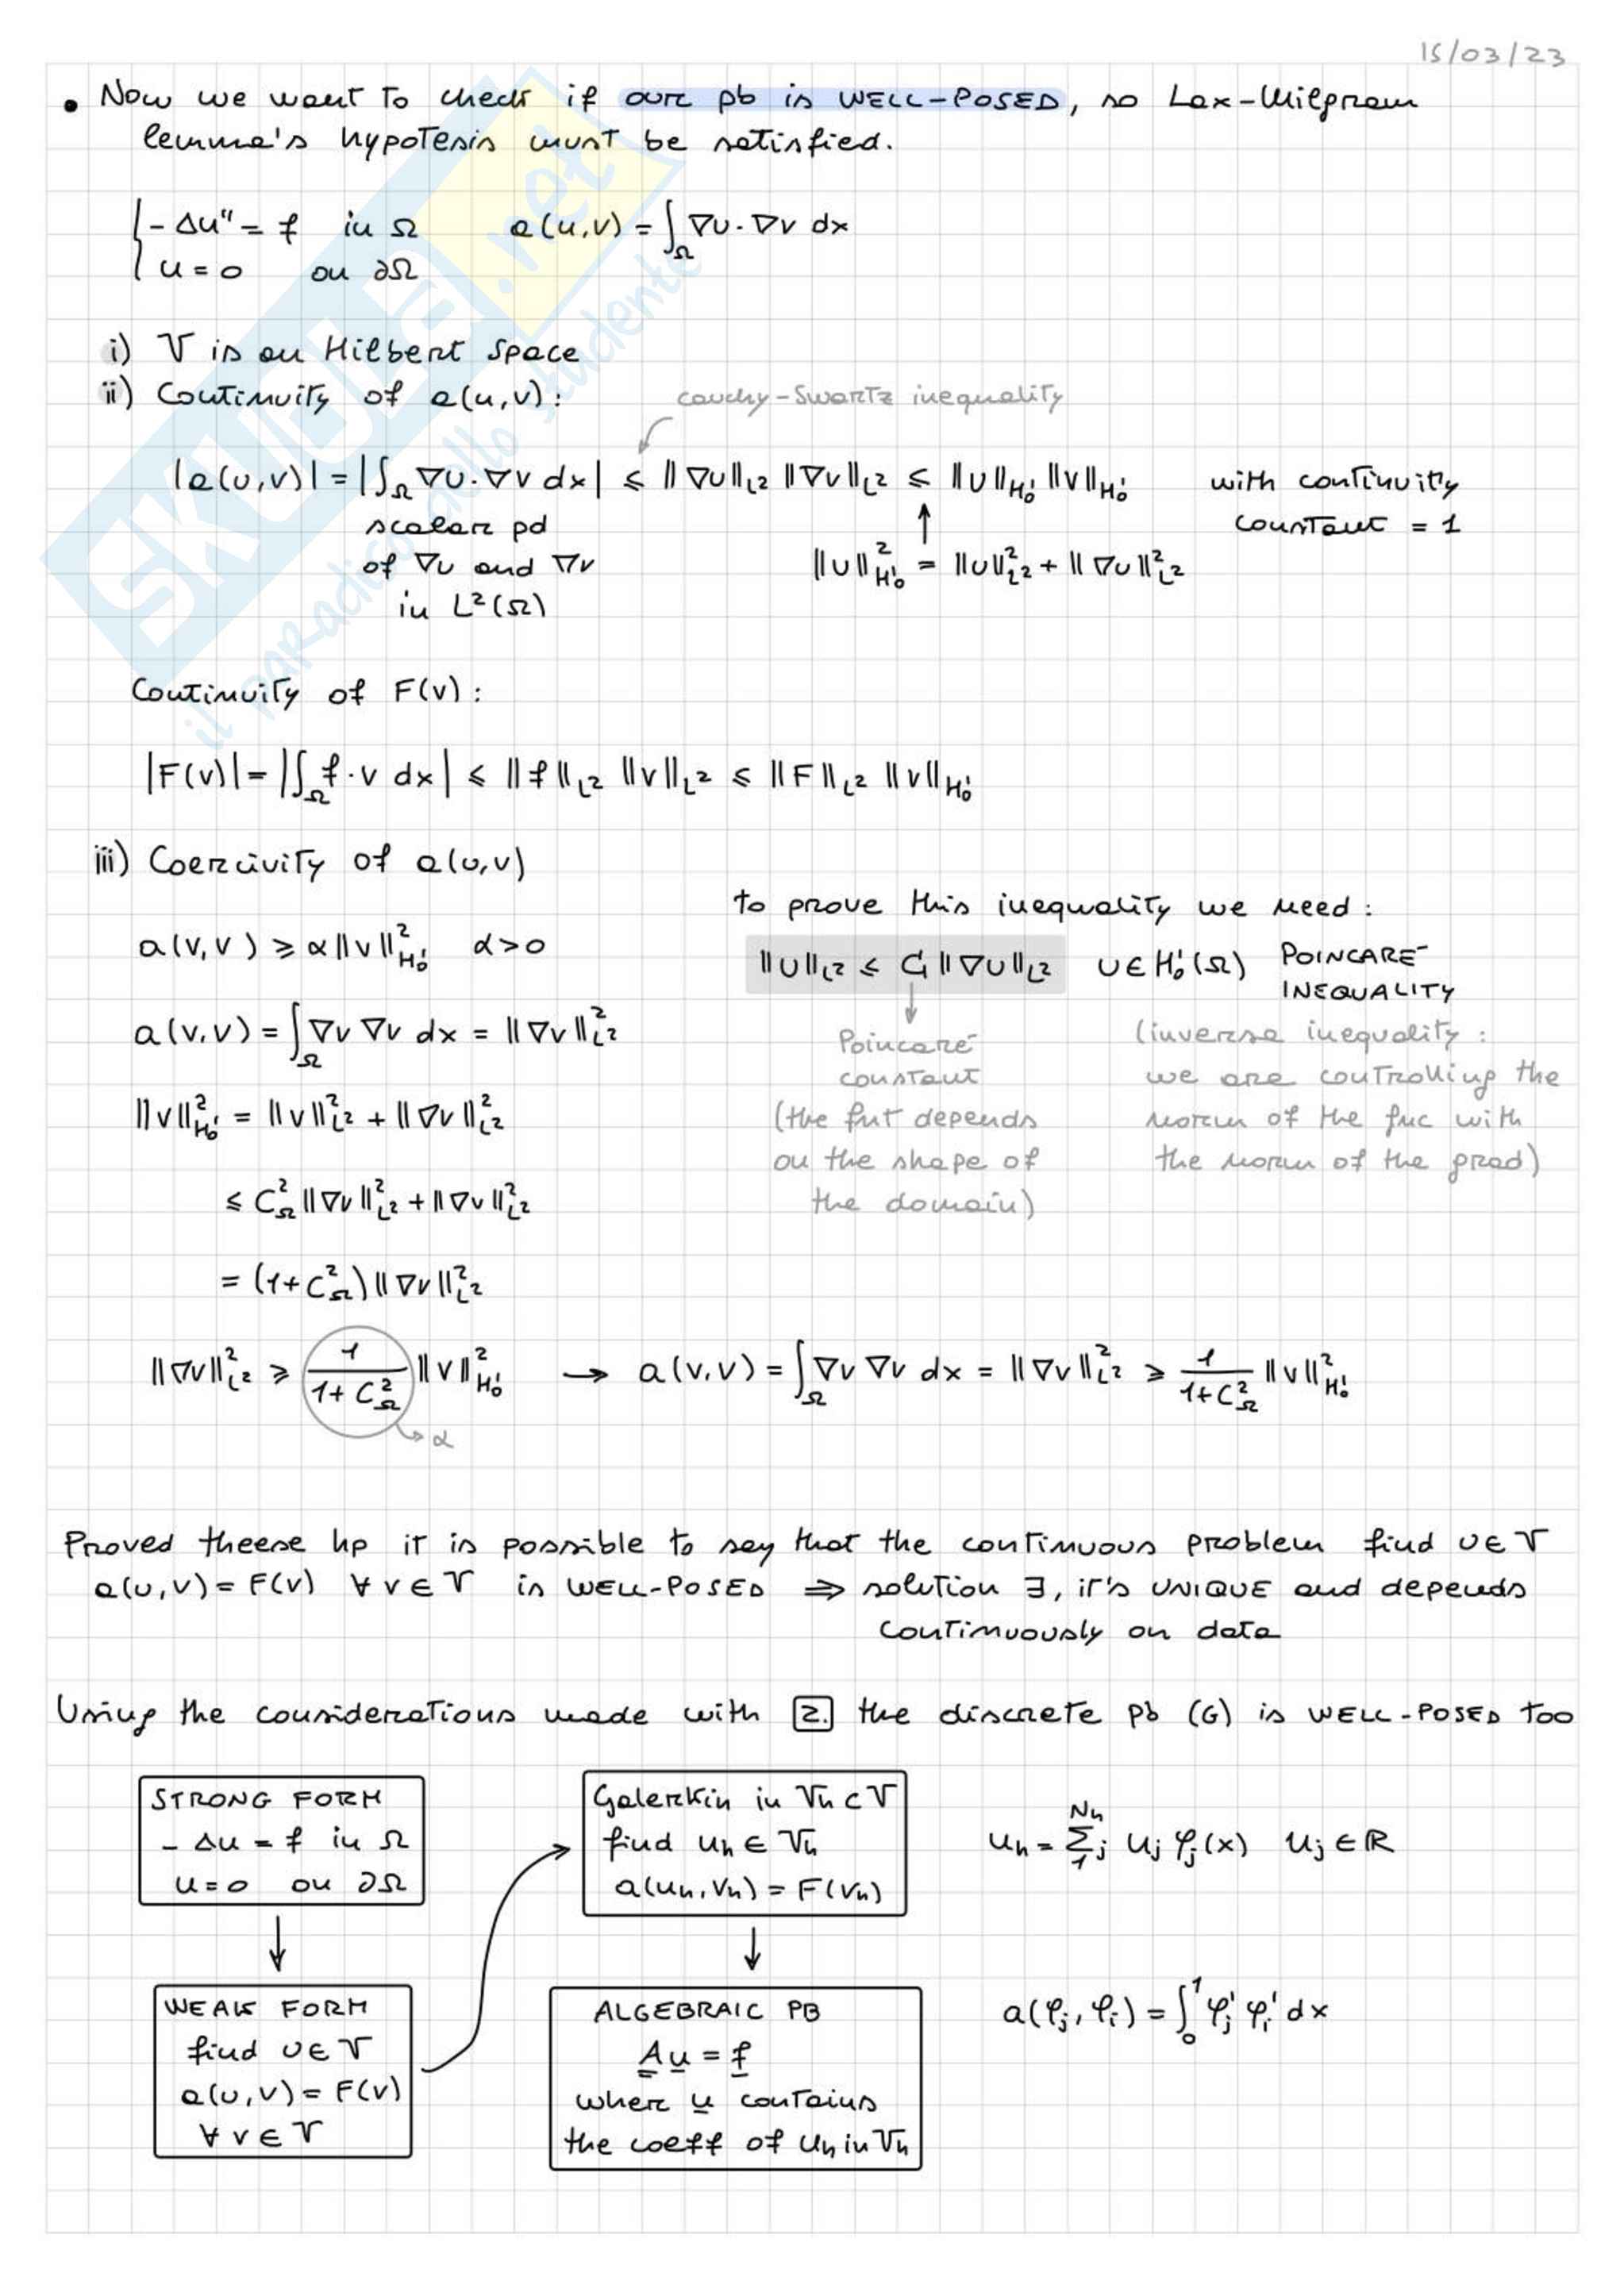 15/03/23
• Now we want to check if our pb is WELL-POSED, so Lax-Milgram
lemma's hypotesis must be satisfied.
{ - Δu" = f in Ω   a(u,v) = ∫_Ω ∇u · ∇v dx
u = 0 on ∂Ω
i) V is an Hilbert Space
ii) Continuity of a(u,v):
cauchy-Swartz inequality
|a(u,v)| = |∫_Ω ∇u · ∇v dx| ≤ ‖∇u‖_L² ‖∇v‖_L² ≤ ‖u‖_H¹₀ ‖v‖_H¹₀   with continuity
constant = 1
scalar pd
of ∇u and ∇v
in L²(Ω)
‖u‖²_H¹₀ = ‖u‖²_L² + ‖∇u‖²_L²
Continuity of F(v):
|F(v)| = |∫_Ω f · v dx| ≤ ‖f‖_L² ‖v‖_L² ≤ ‖F‖_L² ‖v‖_H¹₀
iii) Coercivity of a(u,v)
a(v,v) ≥ α‖v‖²_H¹₀   α>0
a(v,v) = ∫_Ω ∇v ∇v dx = ‖∇v‖²_L²
‖v‖²_H¹₀ = ‖v‖²_L² + ‖∇v‖²_L²
≤ C²_Ω ‖∇v‖²_L² + ‖∇v‖²_L²
= (1+C²_Ω) ‖∇v‖²_L²
to prove this inequality we need:
‖u‖_L² ≤ C ‖∇u‖_L²   u ∈ H¹₀(Ω)   POINCARE'
INEQUALITY
Poincaré
constant
(the fnt depends
on the shape of
the domain)
(inverse inequality:
we are controlling the
norm of the fnc with
the norm of the grad)
‖∇v‖²_L² ≥ 1/(1+C²_Ω) ‖v‖²_H¹₀ → a(v,v) = ∫_Ω ∇v ∇v dx = ‖∇v‖²_L² ≥ 1/(1+C²_Ω) ‖v‖²_H¹₀
→ α
Proved theese hp it is possible to say that the continuous problem find u ∈ V
a(u,v) = F(v) ∀ v ∈ V is WELL-POSED ⇒ solution ∃, it's UNIQUE and depends
continuously on data
Using the considerations made with 2. the discrete pb (G) is WELL-POSED too
STRONG FORM
- Δu = f in Ω
u = 0 on ∂Ω
WEAK FORM
find u ∈ V
a(u,v) = F(v)
∀ v ∈ V
Galerkin in Vh ⊂ V
find uh ∈ Vh
a(uh, vh) = F(vh)
ALGEBRAIC PB
A u = f
where u contains
the coeff of uh in Vh
uh = Σ_1^Nh j uj φj(x)   uj ∈ ℝ
a(φj, φi) = ∫_0^1 φj' φi' dx
SKUOLA.net
il paradiso dello studente